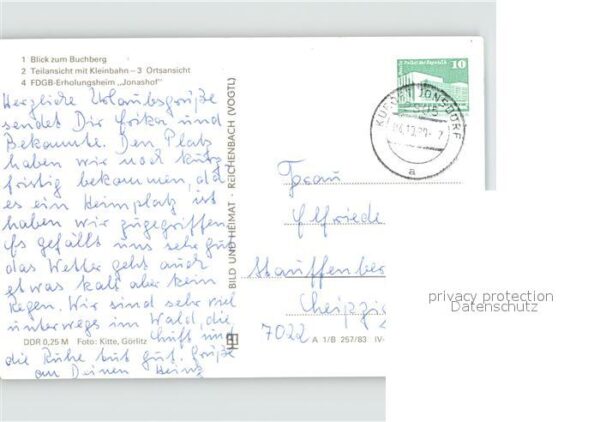 1 Blick zum Buchberg
2 Teilansicht mit Kleinbahn – 3 Ortsansicht
4 FDGB-Erholungsheim „Jonashof"
Herzliche Urlaubsgrüße
sendet Dir Erika und
Bekannte. Den Platz
haben wir noch kurz
fristig bekommen, da
es ein Heimplatz ist
haben wir zugegriffen
Es gefällt uns sehr gut
das Wetter geht auch
etwas kalt aber kein
Regen. Wir sind sehr viel
unterwegs im Wald, die
Luft und
die Ruhe tut gut. Grüße
an Deinen Heinz
DDR 0,25 M Foto: Kitte, Görlitz
BILD UND HEIMAT · REICHENBACH (VOGTL)
10
KURORT JONSDORF
a
Frau
Elfriede
Stauffenber
Leipzig
7022
A 1/B 257/83 IV-
privacy protection
Datenschutz